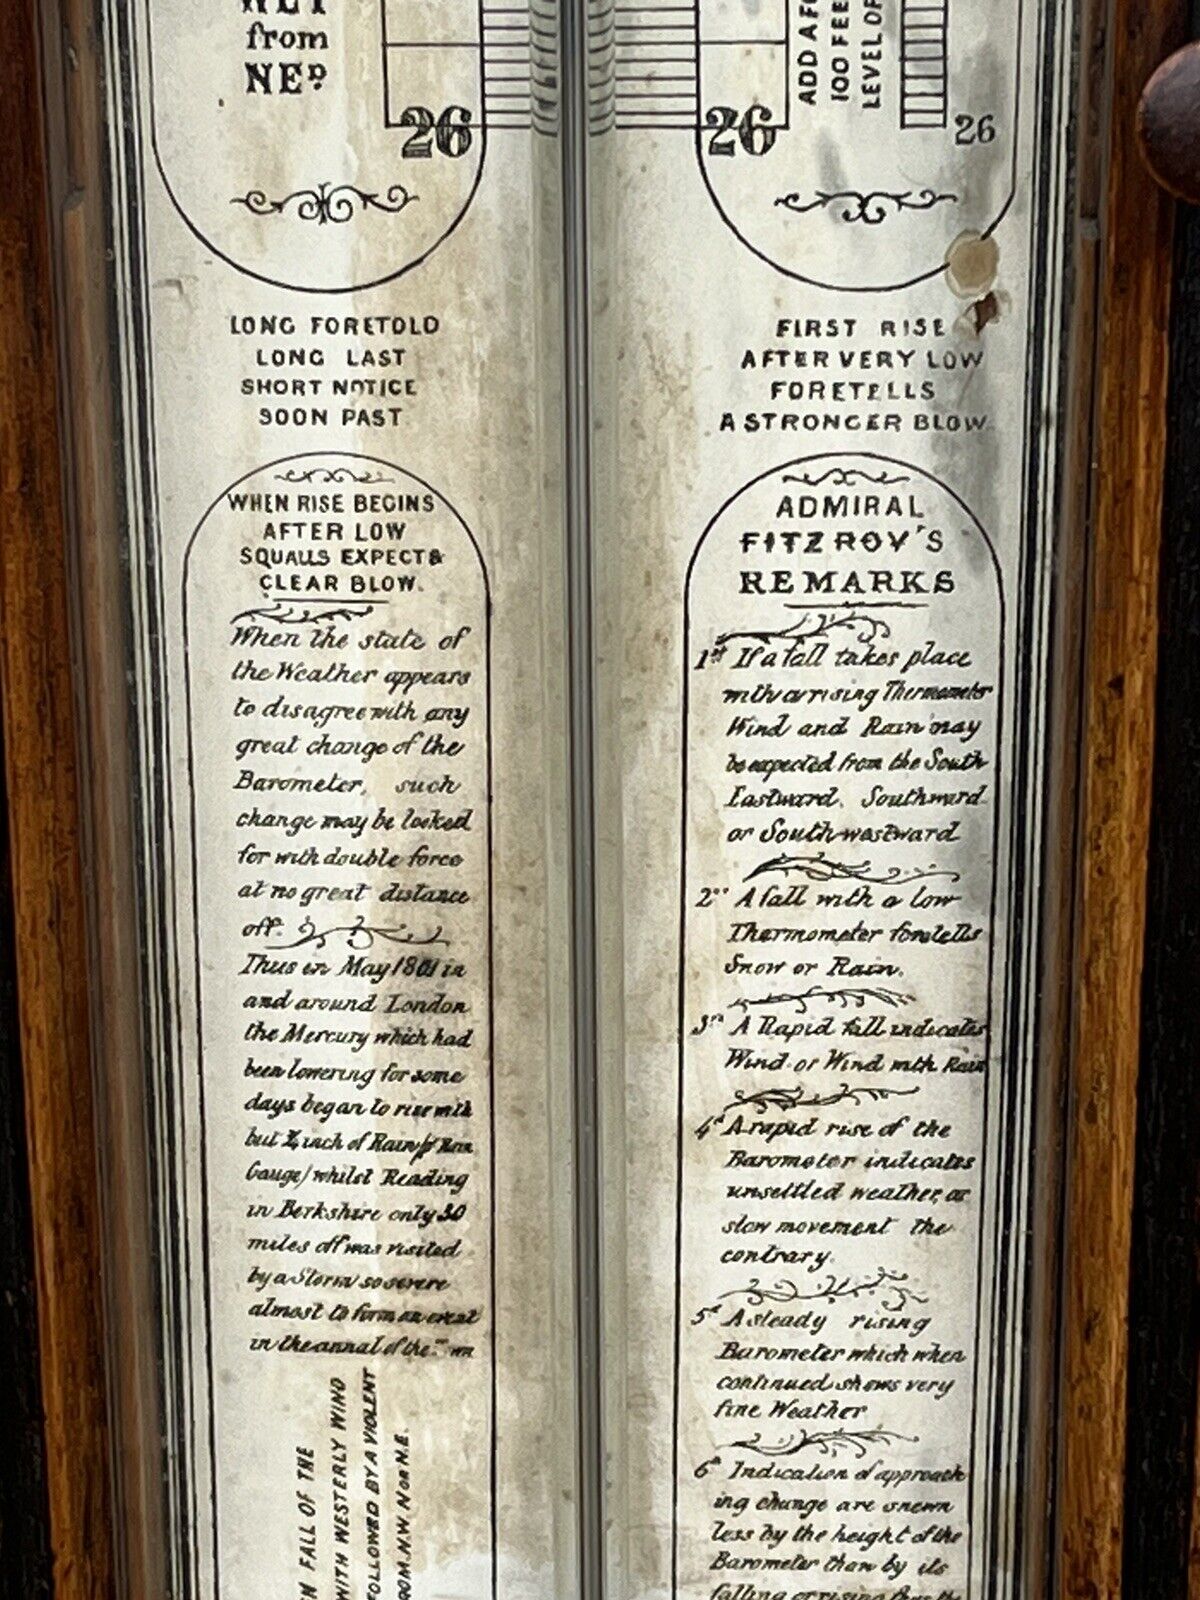 WET
from
NE.D
26
26
ADD A FO
100 FEE
LEVEL OF
26
LONG FORETOLD
LONG LAST
SHORT NOTICE
SOON PAST
FIRST RISE
AFTER VERY LOW
FORETELLS
A STRONGER BLOW
WHEN RISE BEGINS
AFTER LOW
SQUALLS EXPECT &
CLEAR BLOW.
When the state of
the Weather appears
to disagree with any
great change of the
Barometer, such
change may be looked
for with double force
at no great distance
off.
Thus in May 1861 in
and around London
the Mercury which had
been lowering for some
days began to rise with
but inch of Rain
Gauge) whilst Reading
in Berkshire only 30
miles off was visited
by a Storm so severe
almost to form an
in the annal of the
N FALL OF THE
WITH WESTERLY WIND
FOLLOWED BY A VIOLENT
FROM N.W. N or N.E.
ADMIRAL
FITZROY'S
REMARKS
1st If a fall takes place
with a rising Thermometer
Wind and Rain may
be expected from the South
Eastward. Southward
or South-westward
2nd A fall with a low
Thermometer foretells
Snow or Rain.
3rd A Rapid fall indicates
Wind or Wind with Rain
4th A rapid rise of the
Barometer indicates
unsettled weather, as
slow movement the
contrary.
5th A steady rising
Barometer which when
continued shows very
fine Weather
6th Indication of approach
ing change are shewn
less by the height of the
Barometer than by its
falling or rising